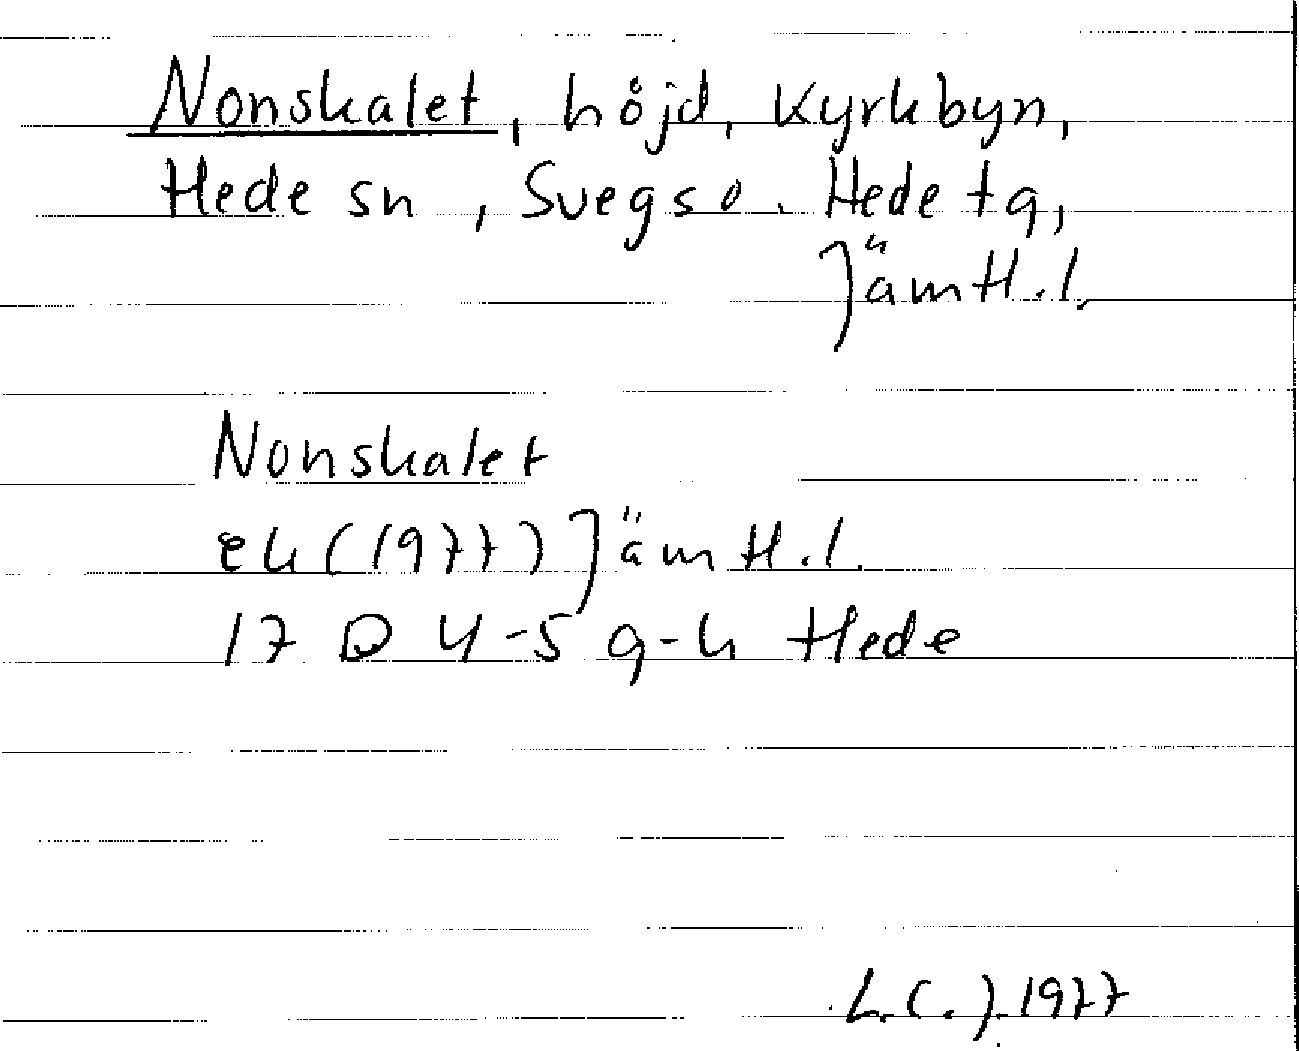 Nonskalet, höjd, Kyrkbyn,
Hede sn, Svegs o. Hede tg,
Jämtl.l.
Nonskalet
ek (1977) Jämtl.l.
17 D 4-5 g-h Hede
L.C.J. 1977